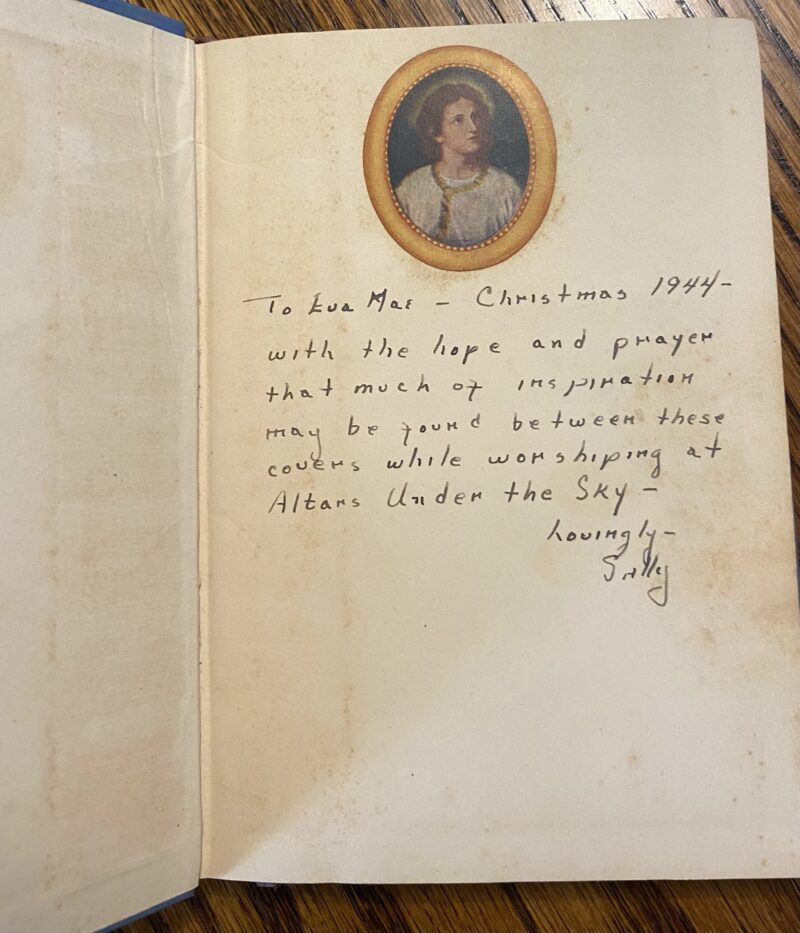 To Eva Mae - Christmas 1944-
with the hope and prayer
that much of inspiration
may be found between these
covers while worshiping at
Altars Under the Sky -
Lovingly-